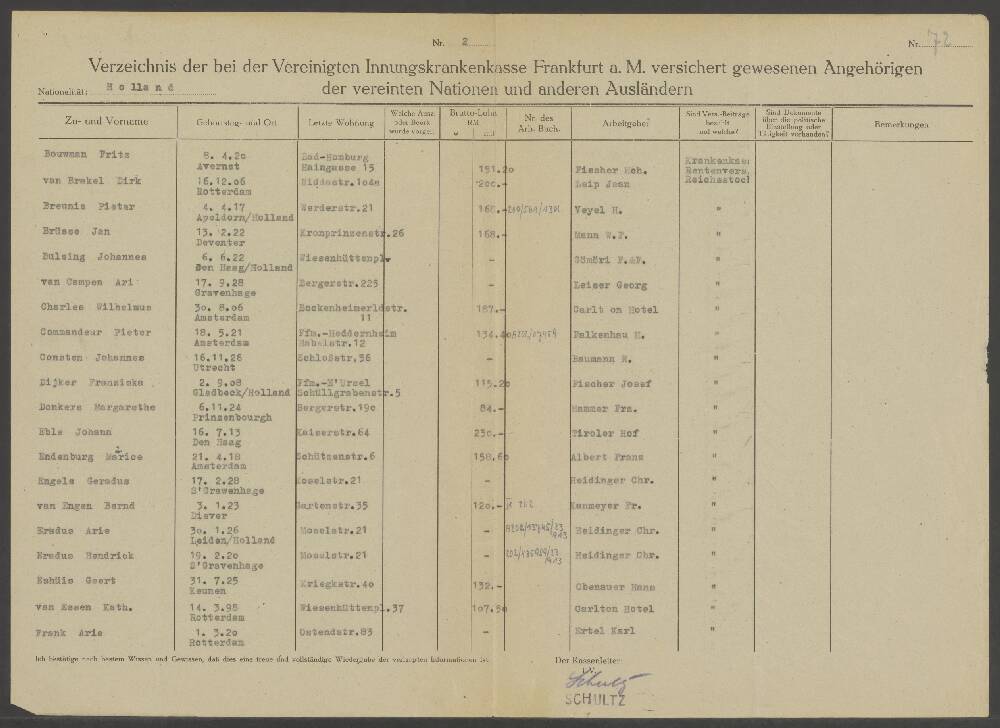 Nr. 2
Nr. 72
Verzeichnis der bei der Vereinigten Innungskrankenkasse Frankfurt a. M. versichert gewesenen Angehörigen
Nationalität: Holland der vereinten Nationen und anderen Ausländern
Zu- und Vorname Geburtstag- und Ort Letzte Wohnung Welche Amt oder Beerk wurde vorgel. Brutto-Lohn RM Nr. des Arb. Buch. Arbeitgeber Sind Vers.-Beiträge bezahlt und welche? Sind Dokumente über die politische Einstellung oder Tätigkeit vorhanden? Bemerkungen
Bouwman Frits 8. 4.20 Bad-Homburg Krankenkas.
Avernst Haingasse 15 151.20 Fischer Hch. Rentenvers.
van Brakel Dirk 16.12.06 Niddastr.104a 200.- Laip Jean Reichsstoc!
Rotterdam
Breunis Pieter 4. 4.17 Werderstr.21 168.- Veyel H. "
Apeldorn/Holland
Brüsse Jan 13. 2.22 Kronprinzenstr.26 168.- Mann W.F. "
Deventer
Bulsing Johannes 6. 6.22 Wiesenhüttenpl. - Gömöri F.&F. "
Den Haag/Holland
van Campen Ari 17. 9.28 Bergerstr.225 - Leiser Georg "
Gravenhage
Charles Wilhelmus 30. 8.06 Bockenheimerldstr. 187.- Carlt on Hotel "
Amsterdam 11
Commandeur Pieter 18. 5.21 Ffm.-Heddernheim 134.40 Falkenhau H. "
Amsterdam Habelstr.12
Consten Johannes 16.11.26 Schloßstr.56 - Baumann R. "
Utrecht
Dijker Franziska 2. 9.08 Ffm.-N'Ursel 115.20 Fischer Josef "
Gladbeck/Holland Schüllgrabenstr.5
Donkers Margarethe 6.11.24 Bergerstr.190 84.- Hammer Frz. "
Prinzenbourgh
Eble Johann 16. 7.13 Kaiserstr.64 230.- Tiroler Hof "
Den Haag
Endenburg Marice 21. 4.18 Schützenstr.6 158.60 Albert Franz "
Amsterdam
Engels Geradus 17. 2.28 Moselstr.21 Heidinger Chr. "
S'Gravenhage
van Engen Bernd 3. 1.23 Gartenstr.35 120.- Kanmeyer Fr. "
Diever
Eradus Arie 30. 1.26 Moselstr.21 - Heidinger Chr. "
Leiden/Holland
Eradus Hendrick 19. 2.20 Moselstr.21 - Heidinger Chr. "
S'Gravenhage
Eshüis Geert 31. 7.25 Kriegkstr.40 132.- Obenauer Hans "
Keunen
van Essen Kath. 14. 3.98 Wiesenhüttenpl.37 107.50 Carlton Hotel "
Rotterdam
Frank Arie 1. 3.20 Ostendstr.83 - Ertel Karl "
Rotterdam
Ich bestätige nach bestem Wissen und Gewissen, daß dies eine treue und vollständige Wiedergabe der verlangten Informationen ist. Der Kassenleiter:
Schultz
SCHULTZ